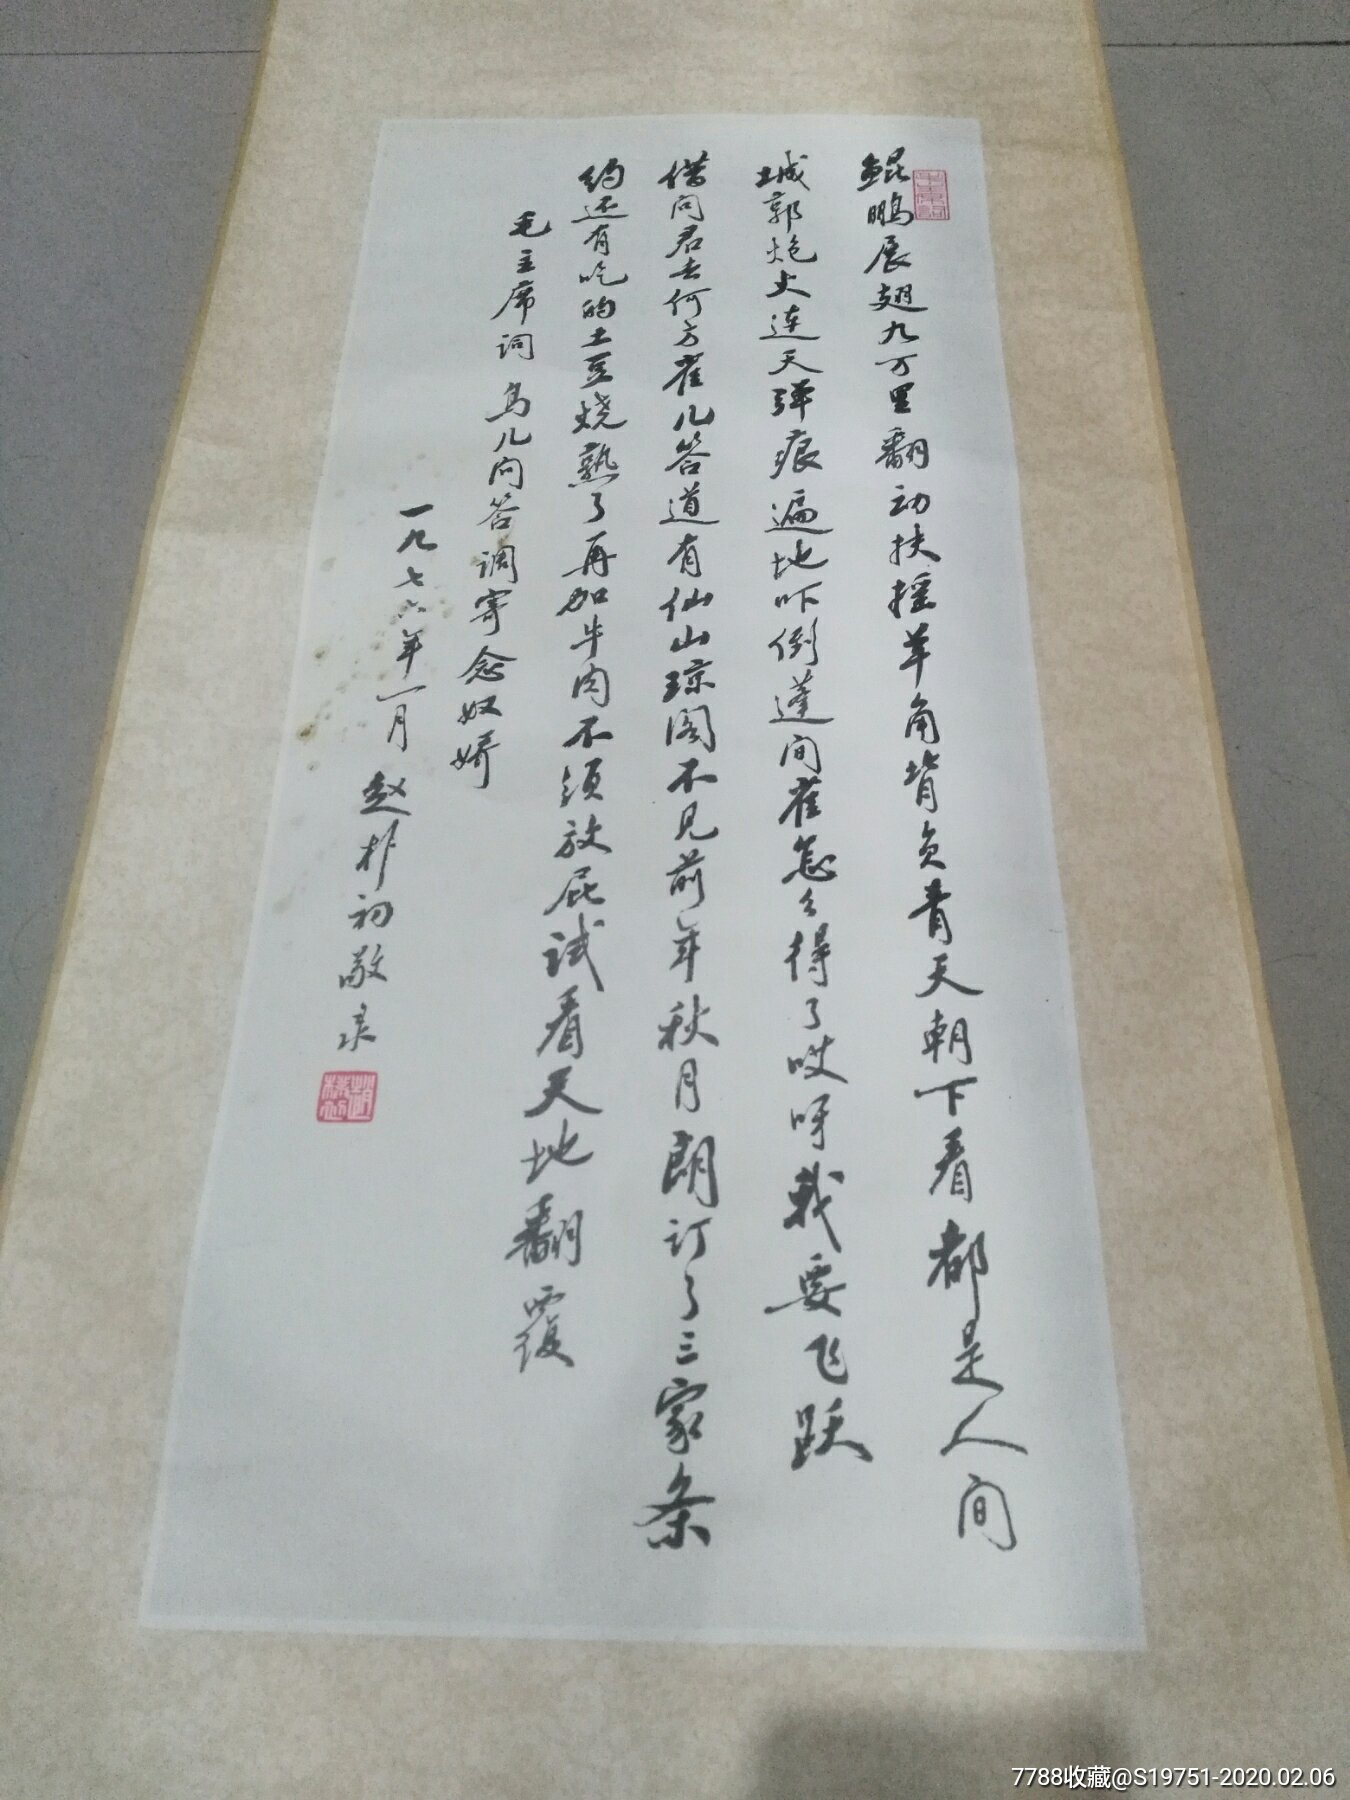 鲲鹏展翅九万里翻动扶摇羊角背负青天朝下看都是人间
城郭炮火连天弹痕遍地吓倒蓬间雀怎么得了哎呀我要飞跃
借问君去何方雀儿答道有仙山琼阁不见前年秋月朗订了三家条
约还有吃的土豆烧熟了再加牛肉不须放屁试看天地翻覆
毛主席词 鸟儿问答调寄念奴娇
一九七六年一月 赵朴初敬录
趙樸初
7788收藏@S19751-2020.02.06